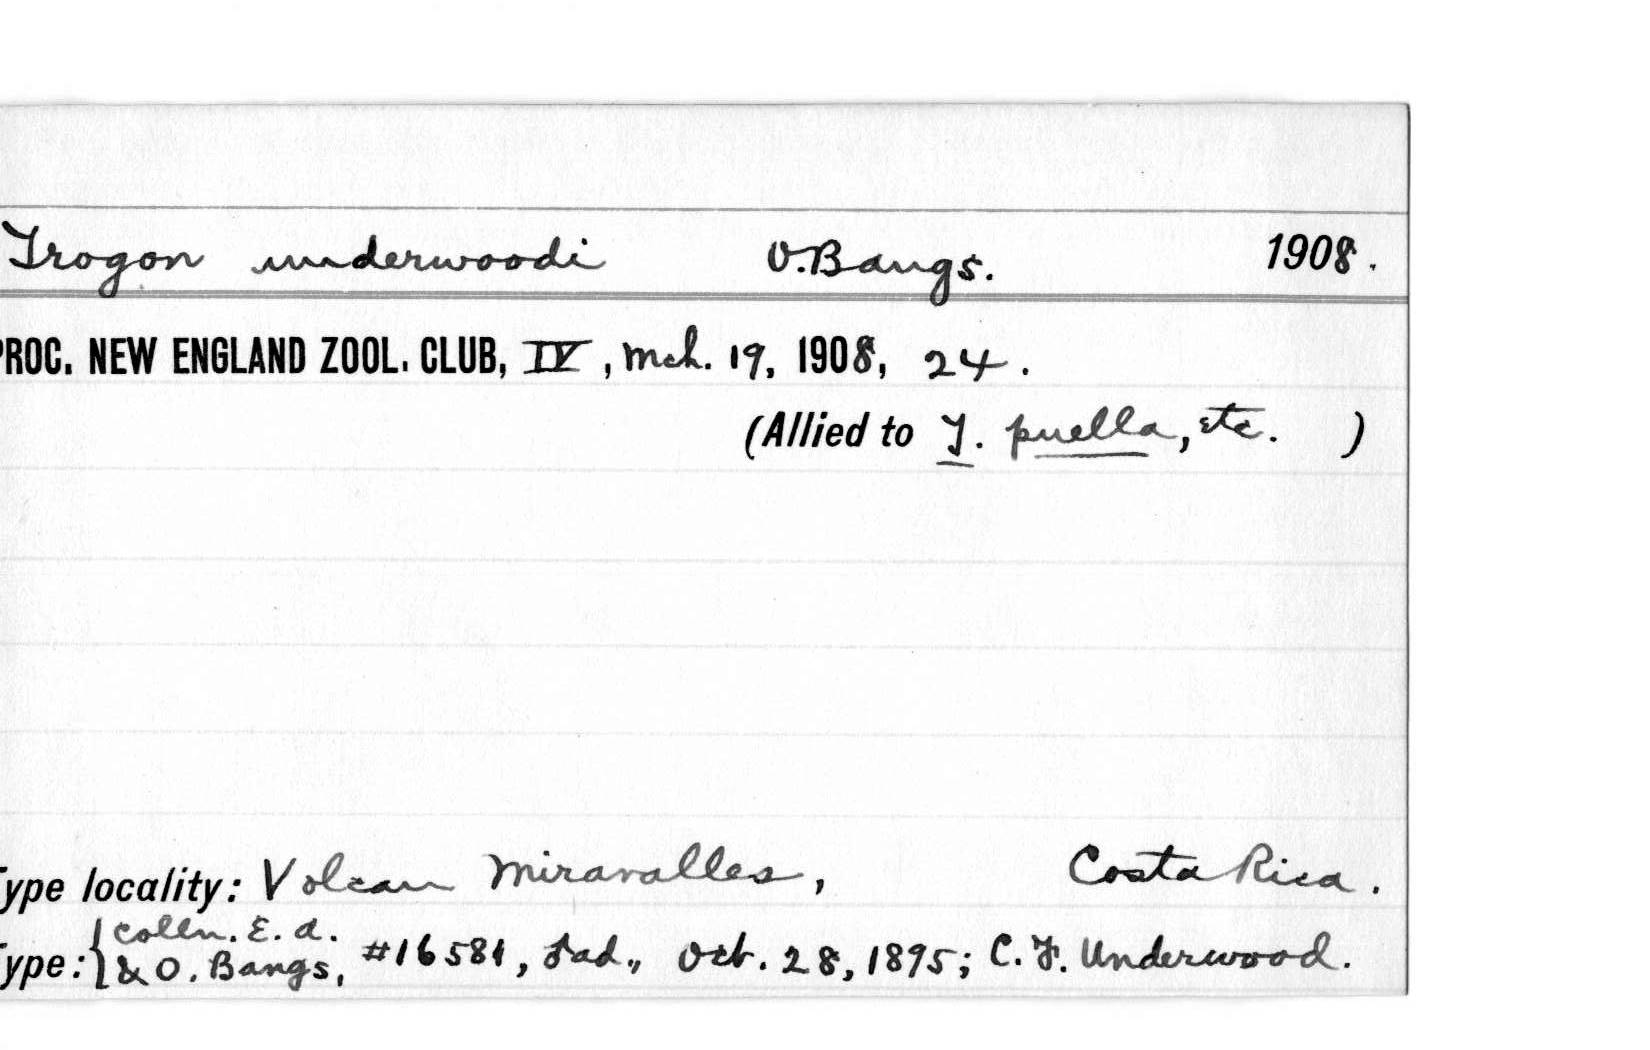 Trogon underwoodi O. Bangs. 1908.
PROC. NEW ENGLAND ZOOL. CLUB, IV, Mch. 19, 1908, 24.
(Allied to T. puella, etc. )
Type locality: Volcan Miravalles, Costa Rica.
Type: { Colln. E. A.
& O. Bangs, #16581, ad., Oct. 28, 1895; C. F. Underwood.